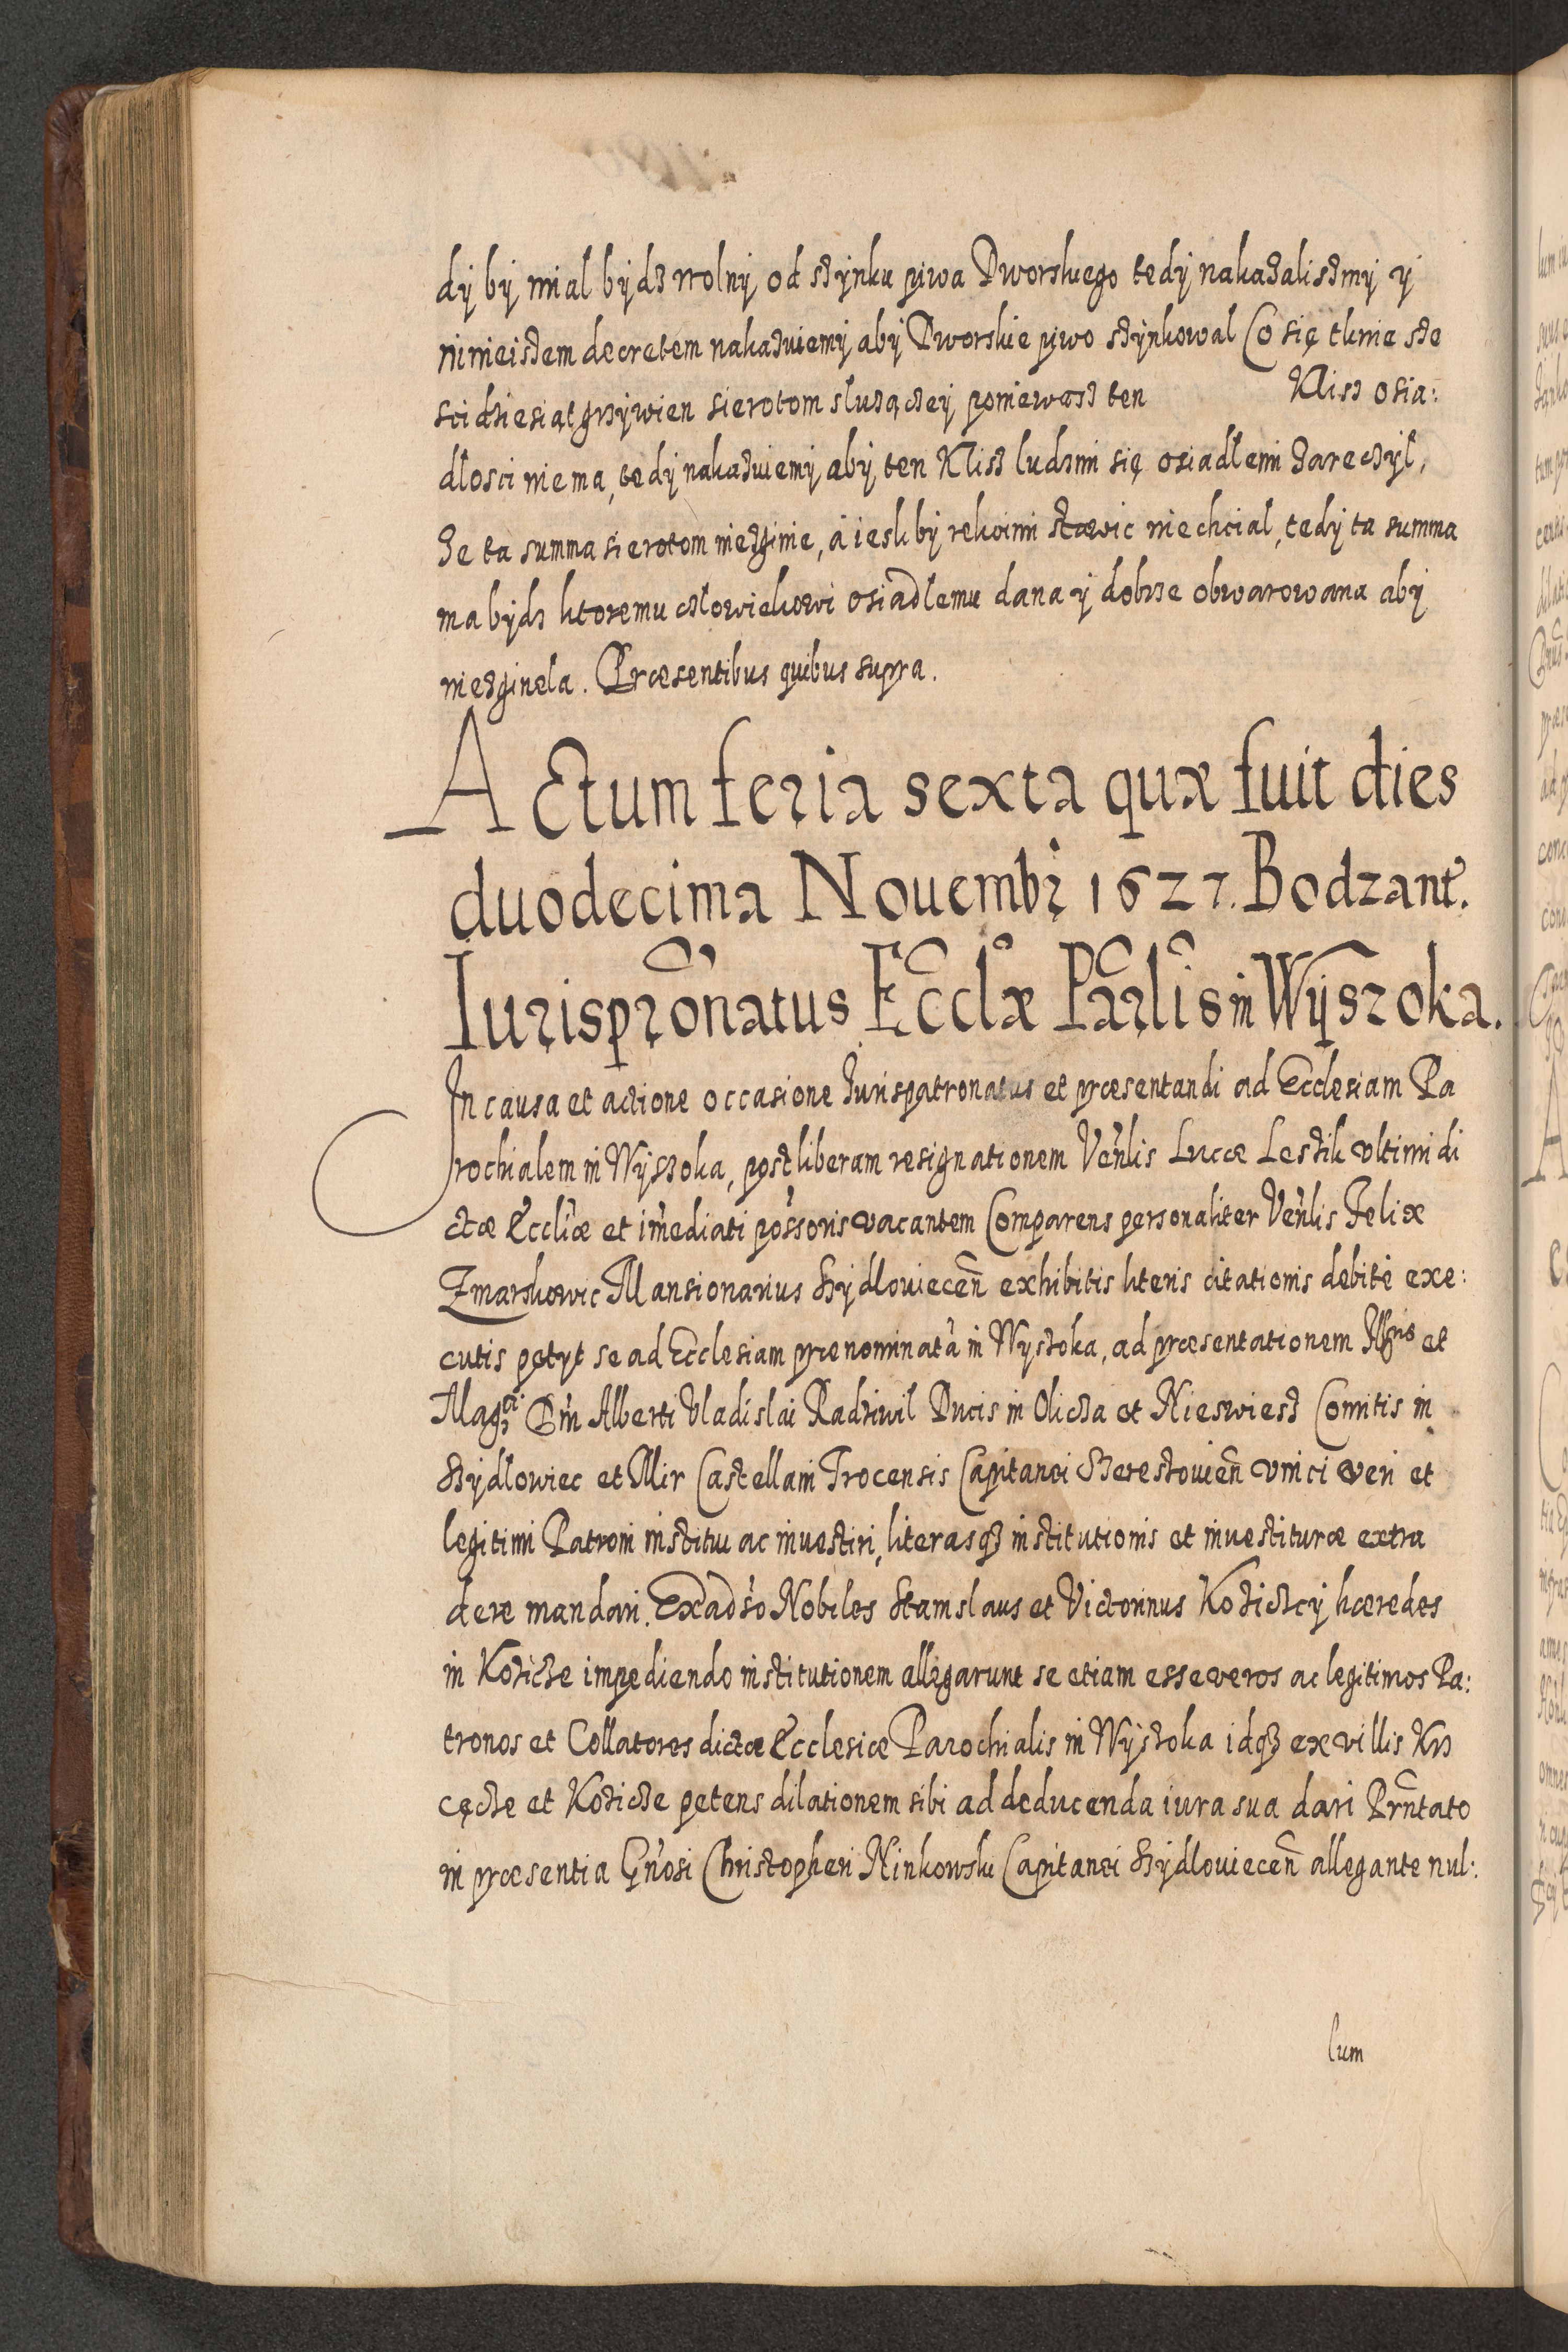 dy by mial bydz wolny od szynku piwa Dworskiego tedy nakazalismy y
ninieiszem decretem nakazuiemy aby Dworskie piwo szynkowal Co się tknie sze
sci dziesiąt grzywien sierotom sluzączey poniewasz ten Klisz osia:
dlosci niema, tedy nakazuiemy aby ten Klisz ludzmi się osiadlemi zareczyl,
Ze ta summa sierotom niezginie, á iesliby rekoimi stawic niechcial, tedy ta summa
ma bydz ktoremu czlowiekowi osiadlemu dana y dobrze obwarowana aby
niezginela. Præsentibus quibus supra.
Actum feria sexta quæ fuit dies
duodecima Nouembr 1627. Bodzant.
Iurisprōnatus Ecclæ Parlis in Wyszoka.
In causa et actione occasione Iurispatronatus et præsentandi ad Ecclesiam Pa
rochialem in Wyszoka, post liberam resignationem Venlis Lucæ Lestik vltimi di
ctæ Eccliæ et imediati possoris vacantem Comparens personaliter Venlis Felix
Zmarskowic Mansionarius Szydlouiecen exhibitis literis citationis debitè exe:
cutis petyt se ad Ecclesiam prænominatā in Wyszoka, ad præsentationem Illris et
Magci Dni Alberti Vladislai Radziwil Ducis in Olicza et Nieswiesz Comitis in
Szydlowiec et Mir Castellani Trocensis Capitanei Szereszouien vnici veri et
legitimi Patroni institui ac inuestiri, literasqȝ institutionis et inuestituræ extra
dere mandari. Exaduso Nobiles Stanislaus et Victorinus Koziczcy hæredes
in Kozicze impediendo institutionem allegarunt se etiam esse veros ac legitimos Pa:
tronos et Collatores dictæ Ecclesiæ Parochialis in Wyszoka idqȝ ex villis Krz
cęcze et Kozicze petens dilationem sibi ad deducenda iura sua dari Prntato
in præsentia Gnosi Christopheri Ninkowski Capitanei Szydlouiecen allegante nul:
lum